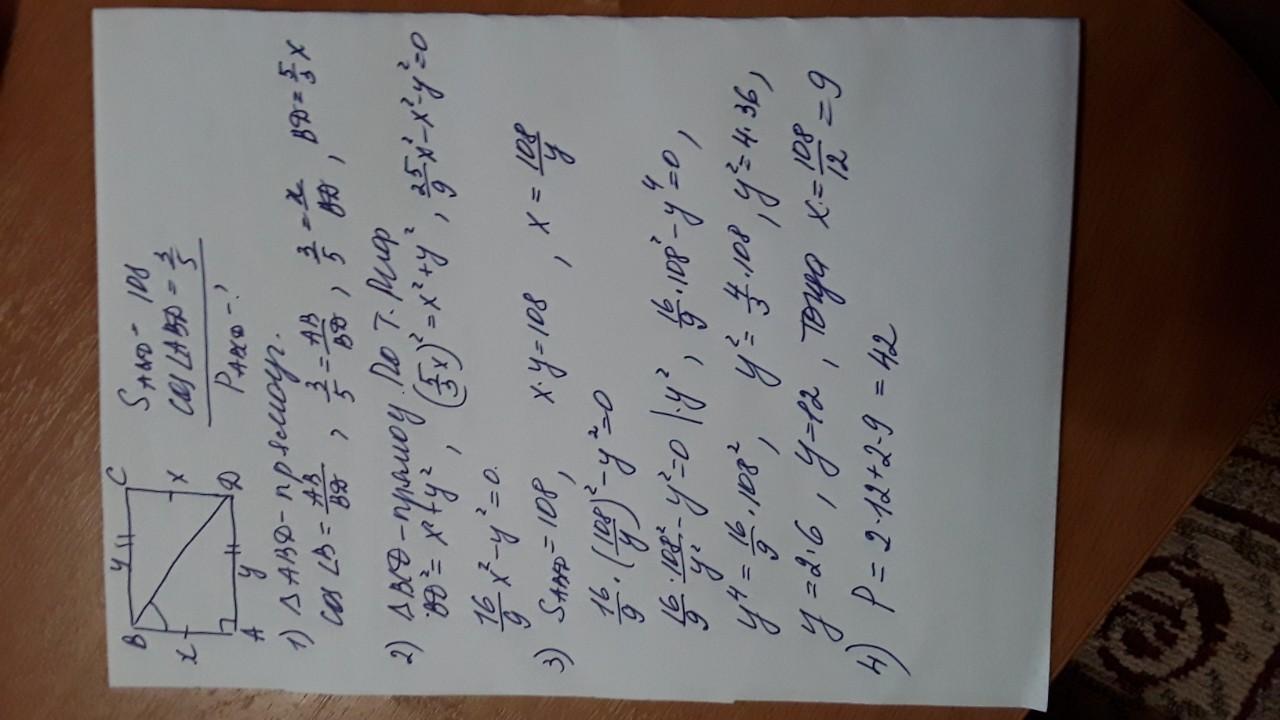 B y C
x x
A y D
S_ABCD = 108
cos ∠ABD = 3/5
P_ABCD - ?
1) ΔABD - прямоуг.
cos ∠B = AB/BD , 3/5 = AB/BD , 3/5 = x/BD , BD = 5/3 x
2) ΔBCD - прямоу. По т. Пиф
BD² = x² + y² , (5/3 x)² = x² + y² , 25/9 x² - x² - y² = 0
16/9 x² - y² = 0.
3) S_ABCD = 108, x·y = 108 , x = 108/y
16/9 · (108/y)² - y² = 0
16/9 · 108²/y² - y² = 0 | · y² , 16/9 · 108² - y⁴ = 0 ,
y⁴ = 16/9 · 108² , y² = 4/3 · 108 , y² = 4·36 ,
y = 2·6 , y = 12 , тогда x = 108/12 = 9
4) P = 2·12 + 2·9 = 42